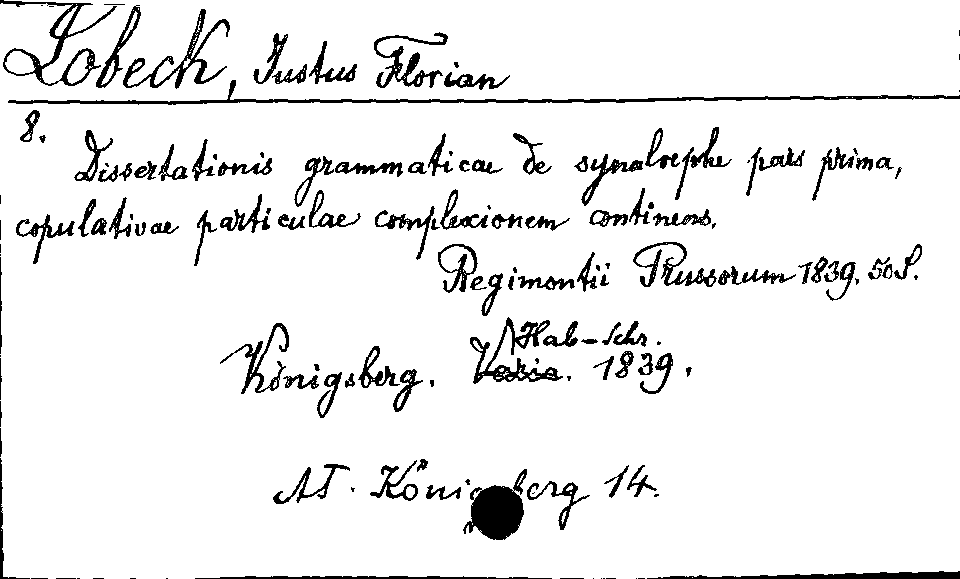 Lobeck, Justus Florian
8.
Dissertationis grammaticae de synaloephe pars prima,
copulativae particulae complexionem continens.
Regimontii Prussorum 1839. 50 S.
Hab-Schr.
Königsberg. Varia. 1839.
AT. Königsberg 14.